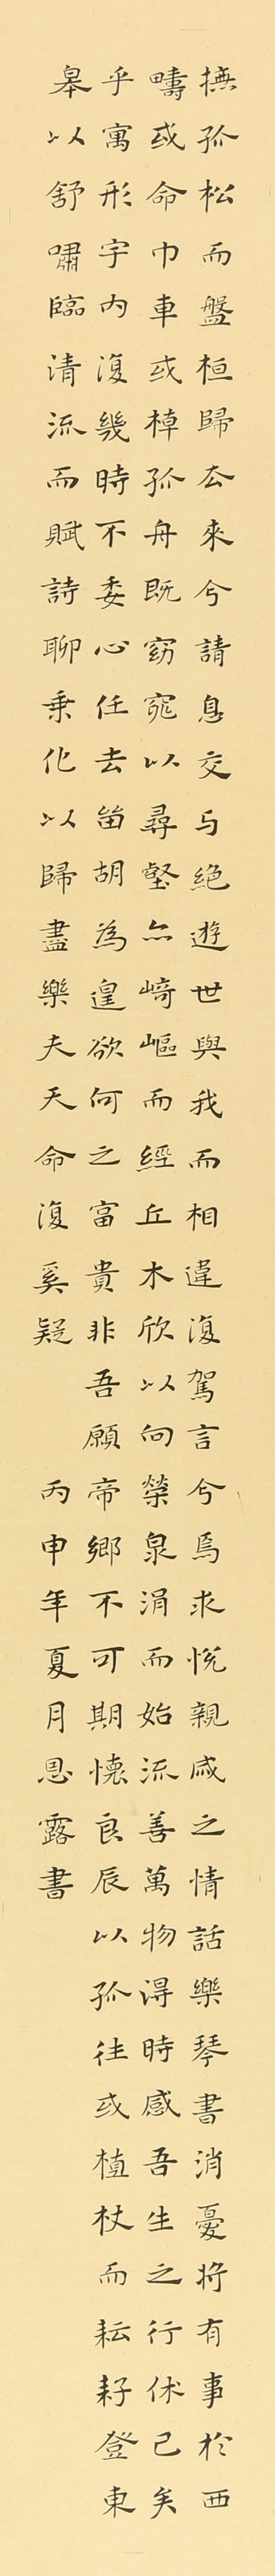 撫孤松而盤桓歸去來兮請息交与絕遊世與我而相違復駕言兮焉求悅親戚之情話樂琴書消憂將有事於西
疇或命巾車或棹孤舟既窈窕以尋壑亦崎嶇而經丘木欣以向榮泉涓而始流善萬物得時感吾生之行休已矣
乎寓形宇內復幾時不委心任去留胡為遑欲何之富貴非吾願帝鄉不可期懷良辰以孤往或植杖而耘耔登東
皋以舒嘯臨清流而賦詩聊乗化以歸盡樂夫天命復奚疑 丙申年夏月恩露書